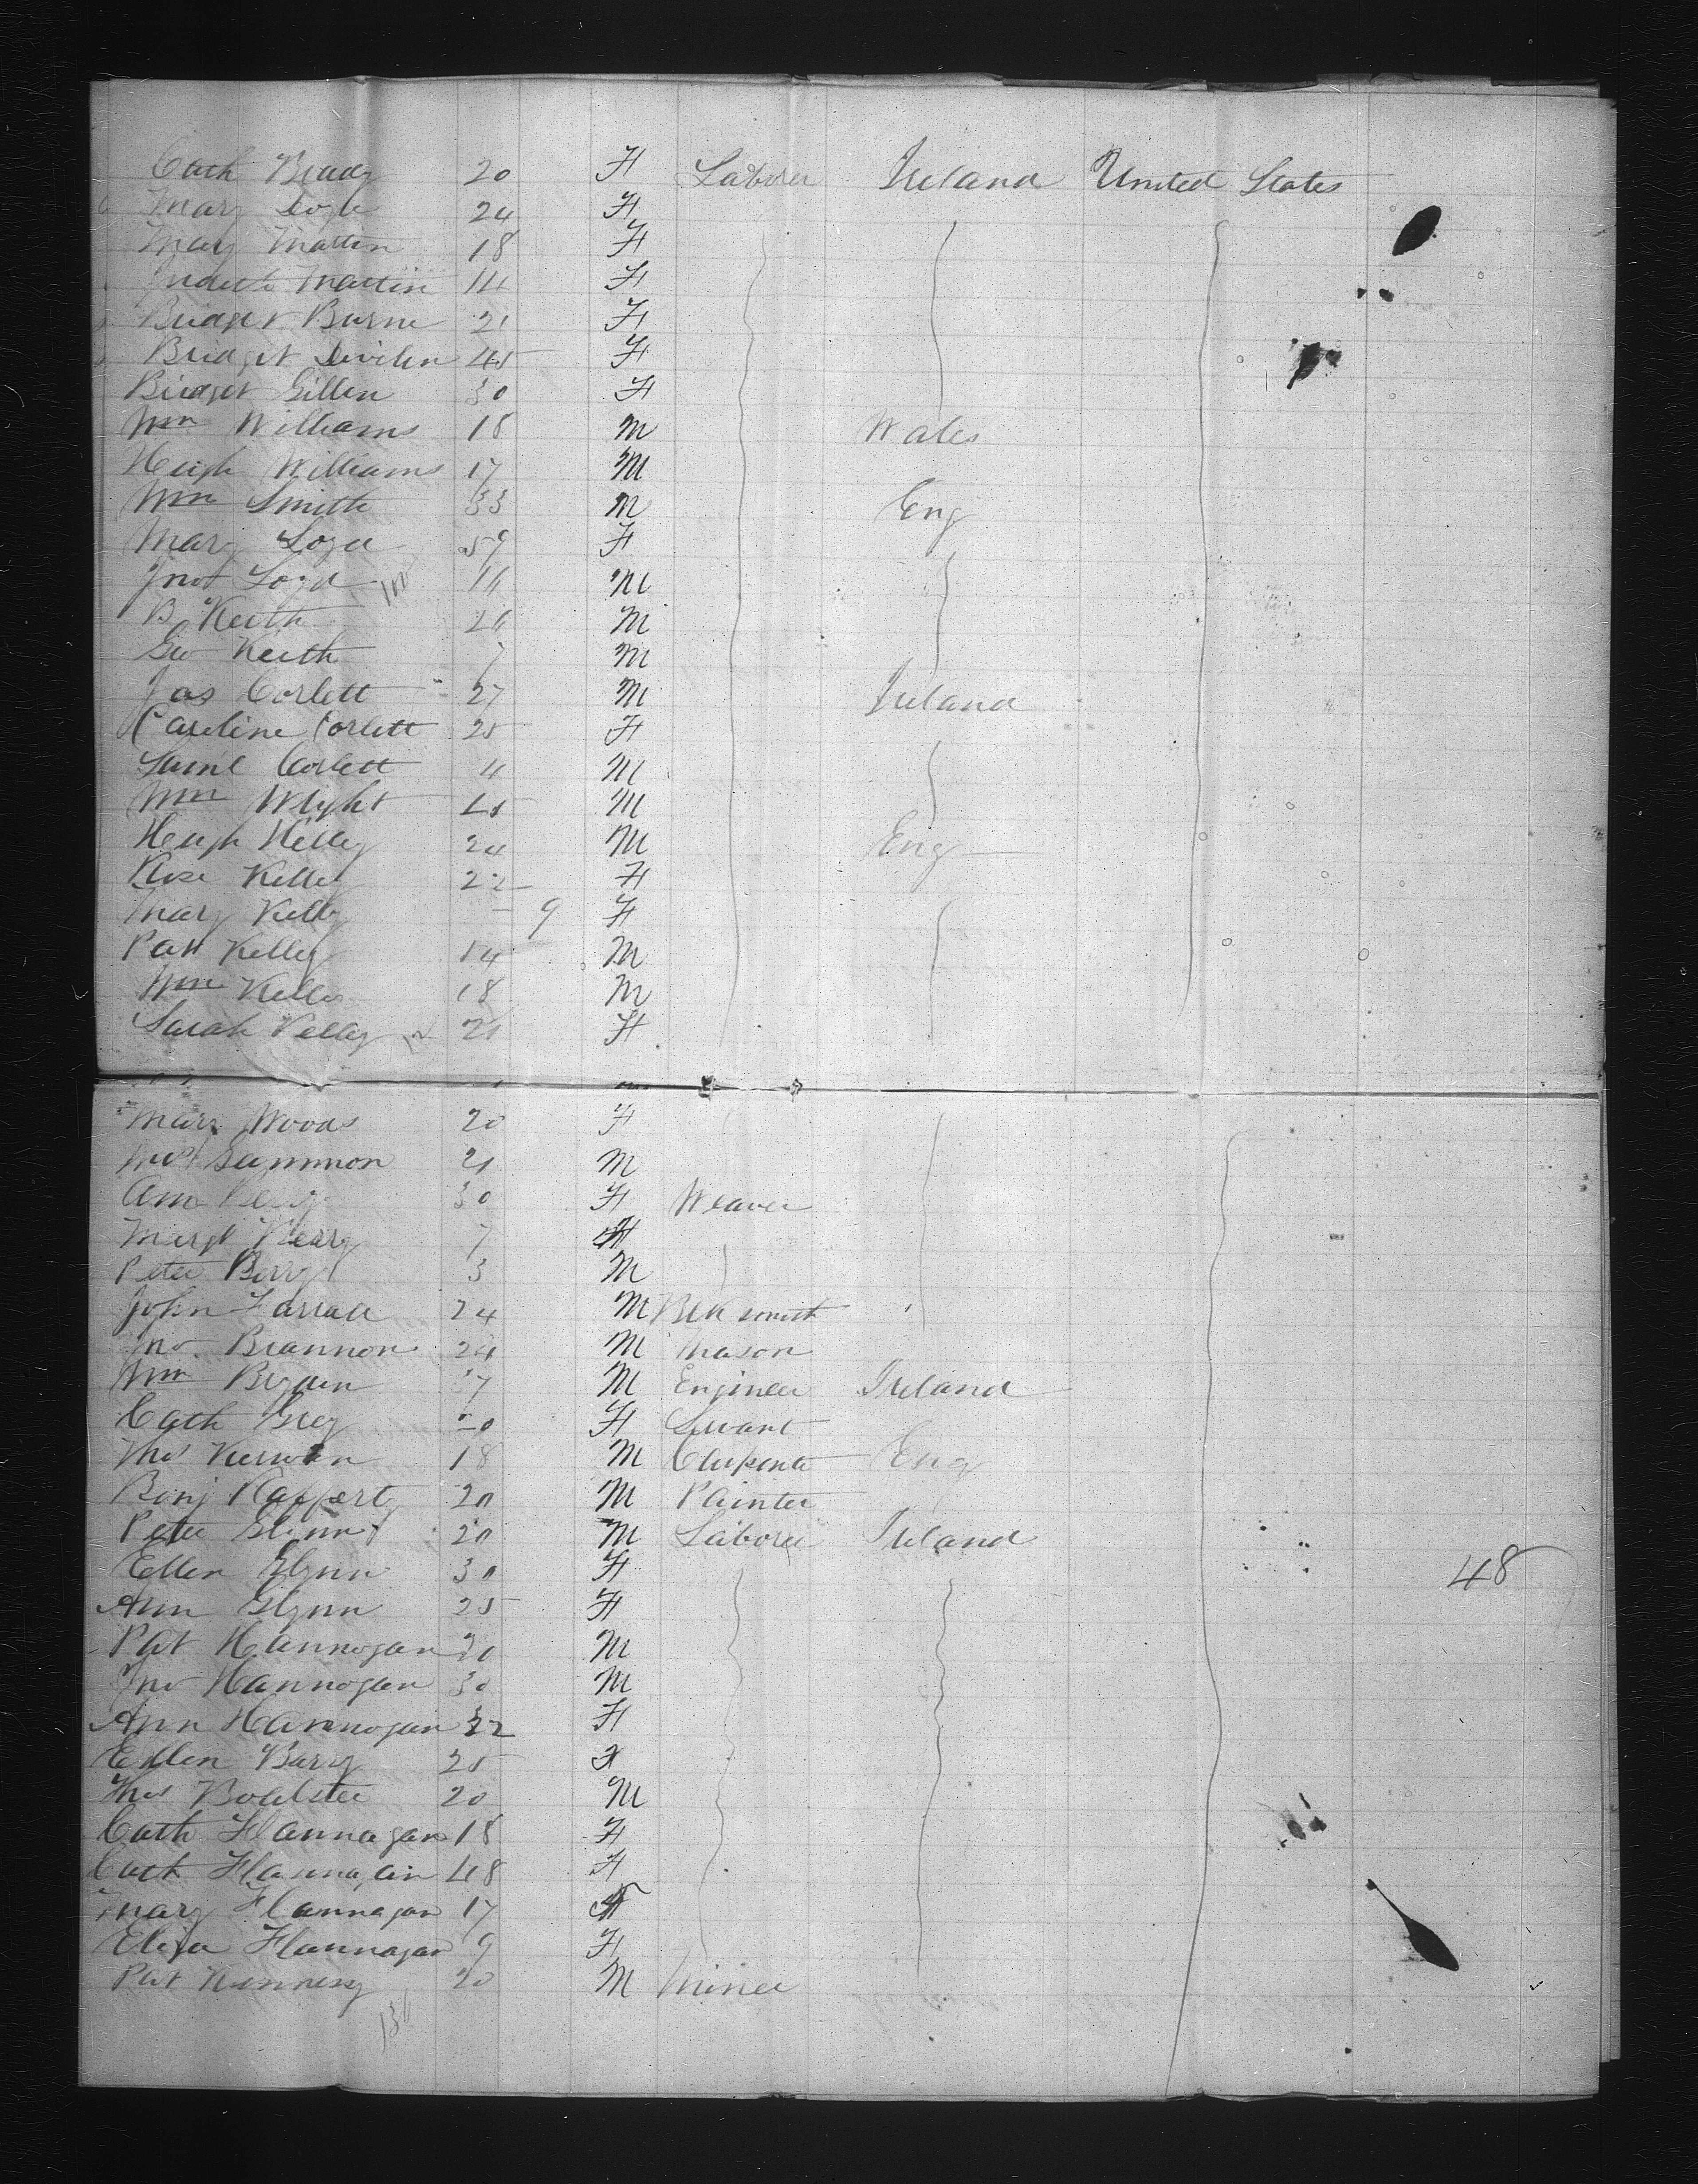 Cath Brady 20 F Laborer Ireland United States
Mary Doyle 24 F
Mary Martin 18 F
Judith Martin 14 F
Bridget Burne 21 F
Bridget Divilen 45 F
Bridget Gillen 30 F
Wm Williams 18 M Wales
Hugh Williams 17 M
Wm Smith 33 M Eng
Mary Loyd 59 F
Loyd M
B Keith 26 M
Geo Keith 7 M
Jas Corlett 27 M Ireland
Caroline Corlett 25 F
Saml Corlett 4 M
Wm Wright M
Hugh Kelley 24 M Eng
Rose Kelley 22 F
Mary Kelley 9 F
Pat Kelley 14 M
Wm Kelley 18 M
Sarah Kelley 21 F
Mary Woods 20 F
Gammon 21 M
Ann 30 F Weaver
Margt 7 F
Peter Berry 3 M
John Farrell 24 M Blk smith
Jno. Brannon 24 M Mason
Wm M Engineer Ireland
Cath Grey F Servant
Thos Kerwin 18 M Carpenter Eng
Benj Rafferty 20 M Painter
Peter Glynn 20 M Laborer Ireland
Ellen Glynn 30 F 48
Ann Glynn 25 F
Pat Hannogan M
Jno Hannogan 30 M
Ann Hannogan 22 F
Ellen Barry 25 F
Thos 20 M
Cath Flannagan 18 F
Cath Flannagan 48 F
Mary Flannagan 17 F
Eliza Flannagan 9 F
Pat Hennessy 20 M Miner